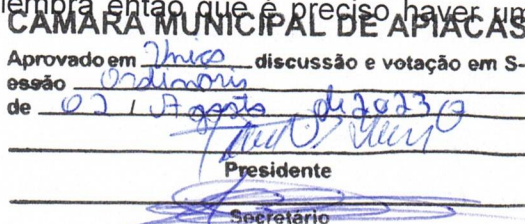 lembra então que é preciso haver um
CÂMARA MUNICIPAL DE APIACÁS
Aprovado em Única discussão e votação em S-
essão Ordinária
de 02 / Agosto de 2023
Presidente
Secretário